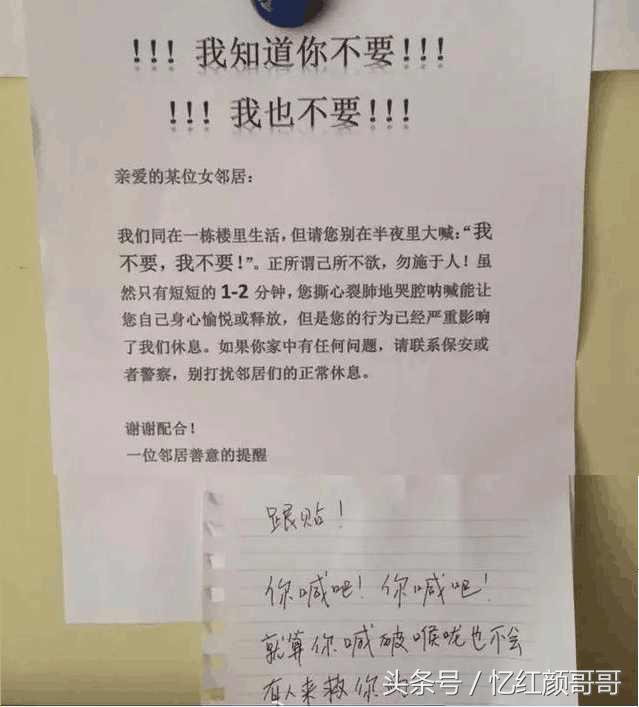 !!! 我知道你不要!!!
!!! 我也不要!!!
亲爱的某位女邻居：
我们同在一栋楼里生活，但请您别在半夜里大喊：“我
不要，我不要！”。正所谓己所不欲，勿施于人！虽
然只有短短的 1-2 分钟，您撕心裂肺地哭腔呐喊能让
您自己身心愉悦或释放，但是您的行为已经严重影响
了我们休息。如果你家中有任何问题，请联系保安或
者警察，别打扰邻居们的正常休息。
谢谢配合！
一位邻居善意的提醒
跟贴！
你喊吧！你喊吧！
就算你喊破喉咙也不会
有人来救你
头条号 / 忆红颜哥哥